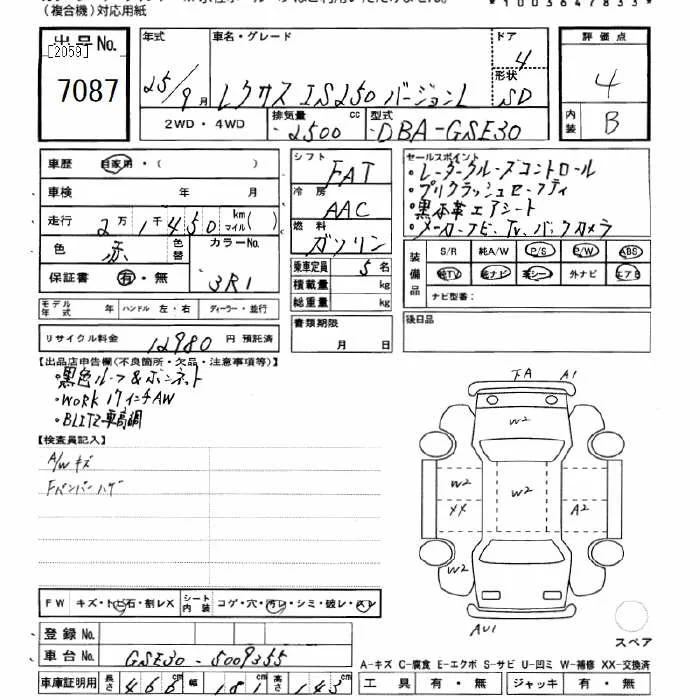 (複合機)対応用紙
*1003647833*
出品No.
[2059]
7087
年式
25/9月
車名・グレード
レクサス IS250 バージョンL
ドア
4
形状
SD
評価点
4
内装
B
2WD・4WD
排気量
2500 cc
型式
DBA-GSE30
車歴 自家用・( )
車検 年 月
走行 2万1千450 km マイル( )
色 赤 色替
カラーNo.
3R1
保証書 有・無
モデル年式 ハンドル 左・右 ディーラー・並行
リサイクル料金 12980 円 預託済
シフト
FAT
冷房
AAC
燃料
ガソリン
乗車定員 5 名
積載量 kg
総重量 kg
書類期限
月 日
セールスポイント
・レーダークルーズコントロール
・プリクラッシュセーフティ
・黒本革エアシート
・メーカーナビ、TV、バックカメラ
装備品
S/R 純A/W P/S P/W ABS
純TV 純ナビ 革シート 外ナビ エアB
ナビ型番:
後日品
【出品店申告欄(不良箇所・欠品・注意事項等)】
・黒色ルーフ&ボンネット
・WORK 17インチAW
・BLITZ車高調
【検査員記入】
A/Wキズ
Fバンパーハゲ
FA A1
W2
W2 W2
XX A2
W2
AU1
スペア
FW キズ・トビ石・割レX
シート内装 コゲ・穴・汚レ・シミ・破レ・スレ
登録No.
車台No. GSE30-5009355
車庫証明用 長さ 466 幅 181 高さ 143
A-キズ C-腐食 E-エクボ S-サビ U-凹ミ W-補修 XX-交換済
工具 有・無 ジャッキ 有・無